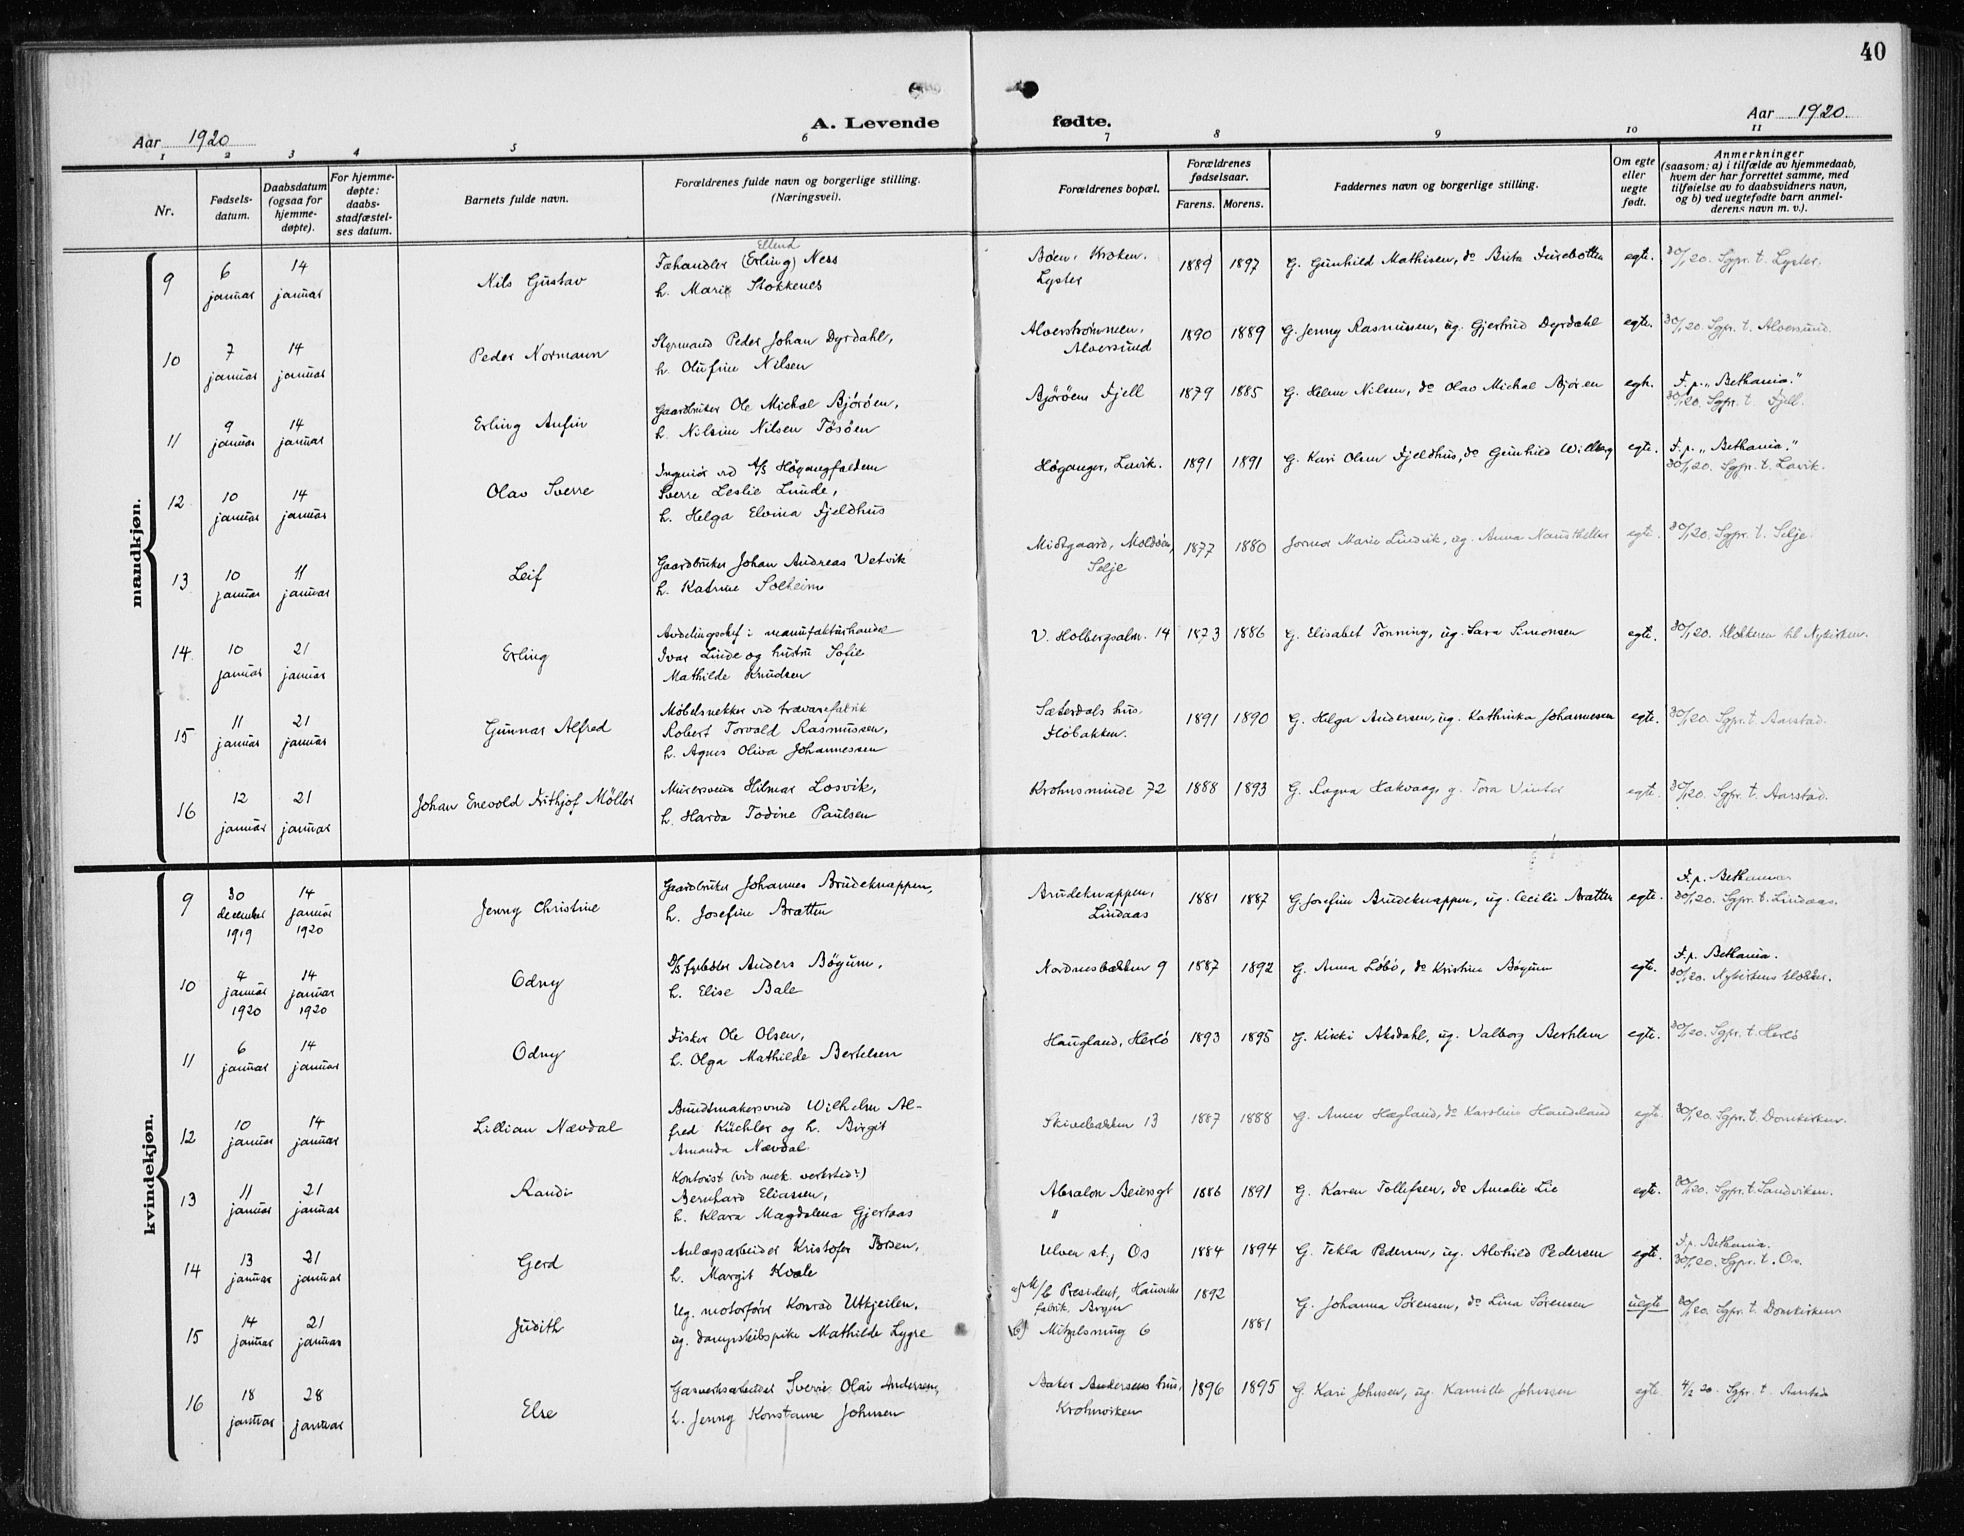 40
Aar 1920
A. Levende
fødte.
Aar 1920.
1 2 3 4 5 6 7 8 9 10 11
Nr.
Fødsels-
datum.
Daabsdatum
(ogsaa for
hjemme-
døpte).
For hjemme-
døpte:
daabs-
stadfæstel-
ses datum.
Barnets fulde navn.
Forældrenes fulde navn og borgerlige stilling.
(Næringsvei).
Forældrenes bopæl.
Forældrenes
fødselsaar.
Farens. Morens.
Faddernes navn og borgerlige stilling.
Om egte
eller
uegte
født.
Anmerkninger
(saasom: a) i tilfælde av hjemmedaab,
hvem der har forrettet samme, med
tilføielse av to daabsvidners navn,
og b) ved uegtefødte barn anmel-
derens navn m. v.).
mandkjøn.
9
6
januar
14
januar
Nils Gustav
Ellend
Fæhandler (Erling) Ness
h. Marie Stokkenes
Bøen, Kroken,
Lyster
1889 1897
G. Gunhild Mathisen, do Brita Furebotten
egte.
30/1 20. Sgpr. t. Lyster.
10
7
januar
14
januar
Peder Normann
Styrmand Peder Johan Dyrdahl,
h. Olufine Nilsen
Alverstrømmen,
Alversund
1890 1889
G. Jenny Rasmussen, ug. Gjertrud Dyrdahl
egte.
30/1 20. Sgpr. t. Alversund.
11
9
januar
14
januar
Erling Anfin
Gaardbruker Ole Michal Bjørøen,
h. Nilsine Nilsen Tøsøen
Bjørøen, Fjell
1879 1885
G. Helene Nilsen, do Olav Michal Bjørøen
egte.
F. p. "Bethania."
30/1 20. Sgpr. t. Fjell.
12
10
januar
14
januar
Olav Sverre
Ingeniør ved A/S Høgangfaldene
Sverre Leslie Lunde,
h. Helga Elvina Fjeldhus
Høganger, Lavik.
1891 1891
G. Kari Olene Fjeldhus, do Gunhild Willberg
egte.
F. p. "Bethania."
30/1 20. Sgpr. t. Lavik.
13
10
januar
11
januar
Leif
Gaardbruker Johan Andreas Vetvik
h. Katrine Solheim
Midtgaard, Moldøen,
Selje
1877 1880
Jormor Marie Lindvik, ug. Anna Naustheller
egte.
30/1 20. Sgpr. t. Selje.
14
10
januar
21
januar
Erling
Avdelingschef i manufakturhandel
Ivar Linde og hustru Sofie
Mathilde Knudsen
V. Holbergsalm. 14
1873 1886
G. Elisabet Tonning, ug. Sara Simonsen
egte.
30/1 20. Klokkeren til Nykirken.
15
11
januar
21
januar
Gunnar Alfred
Møbelsnekker ved trævarefabrik
Robert Torvald Rasmussen,
h. Agnes Oliva Johannessen
Sæterdals hus.
Fløbakken.
1891 1890
G. Helga Andersen, ug. Kathinka Johannesen
egte.
30/1 20. Sgpr. t. Aarstad.
16
12
januar
21
januar
Johan Enevold Frithjof Møller
Murersvend Hilmar Losvik,
h. Harda Todine Paulsen
Krohnsminde 72
1888 1893
G. Ragna Hakvaag, g. Tora Vinter
egte.
30/1 20. Sgpr. t. Aarstad.
kvindekjøn.
9
30
december
1919
14
januar
1920
Jenny Christine
Gaardbruker Johannes Brudeknappen,
h. Josefine Bratten
Brudeknappen,
Lindaas
1881 1887
G. Josefine Brudeknappen, ug. Cecilie Bratten
egte.
F. p. Bethania
30/1 20. Sgpr. t. Lindaas.
10
4
januar
1920
14
januar
1920
Odny
D/S fyrbøter Anders Bøgum,
h. Elise Bale
Nordnesbakken 9
1887 1892
G. Anna Løbø, do Kristine Bøgum
egte.
F. p. Bethania.
30/1 20. Nykirkens klokker.
11
6
januar
14
januar
Odny
Fisker Ole Olsen,
h. Olga Mathilde Bertelsen
Haugland, Herlø
1893 1895
G. Kikki Aksdahl, ug. Valborg Bertelsen
egte.
30/1 20. Sgpr. t. Herlø
12
10
januar
14
januar
Lillian Nævdal
Buntmakersvend Wilhelm Al-
fred Küchler og h. Birgit
Amanda Nævdal
Skivebakken 13
1887 1888
G. Anna Hægland, do Karoline Handeland
egte.
30/1 20. Sgpr. t. Domkirken.
13
11
januar
21
januar
Randi
Kontorist (ved mek. verksted?)
Bernhard Eliassen,
h. Klara Magdalena Gjertsas
Absalon Beiersgt
"
1886 1891
G. Karen Tollefsen, do Amalie Lie
egte.
30/1 20. Sgpr. t. Sandviken.
14
13
januar
21
januar
Gerd
Anlægsarbeider Kristofer Torsen,
h. Margit Kvale
Ulven st., Os
1884 1894
G. Tekla Pedersen, ug. Alvhild Pedersen
egte.
F. p. Bethania.
30/1 20. Sgpr. t. Os.
15
14
januar
21
januar
Judith
Ug. motorfører Konrad Utkjeilen,
ug. dampskibspike Mathilde Lygre
a) M/C President,
fabrik, Bergen
b) Mitzelsmug 6
1892
1881
G. Johanna Sørensen, do Lina Sørensen
uegte
30/1 20. Sgpr. t. Domkirken
16
18
januar
28
januar
Else
Gasverksarbeider Sverre Olai Andersen,
h. Jenny Konstanse Johnsen
Baker Andersens hus,
Krohnviken
1896 1895
G. Kari Johnsen, ug. Kamilla Johnsen
egte.
4/2 20. Sgpr. t. Aarstad